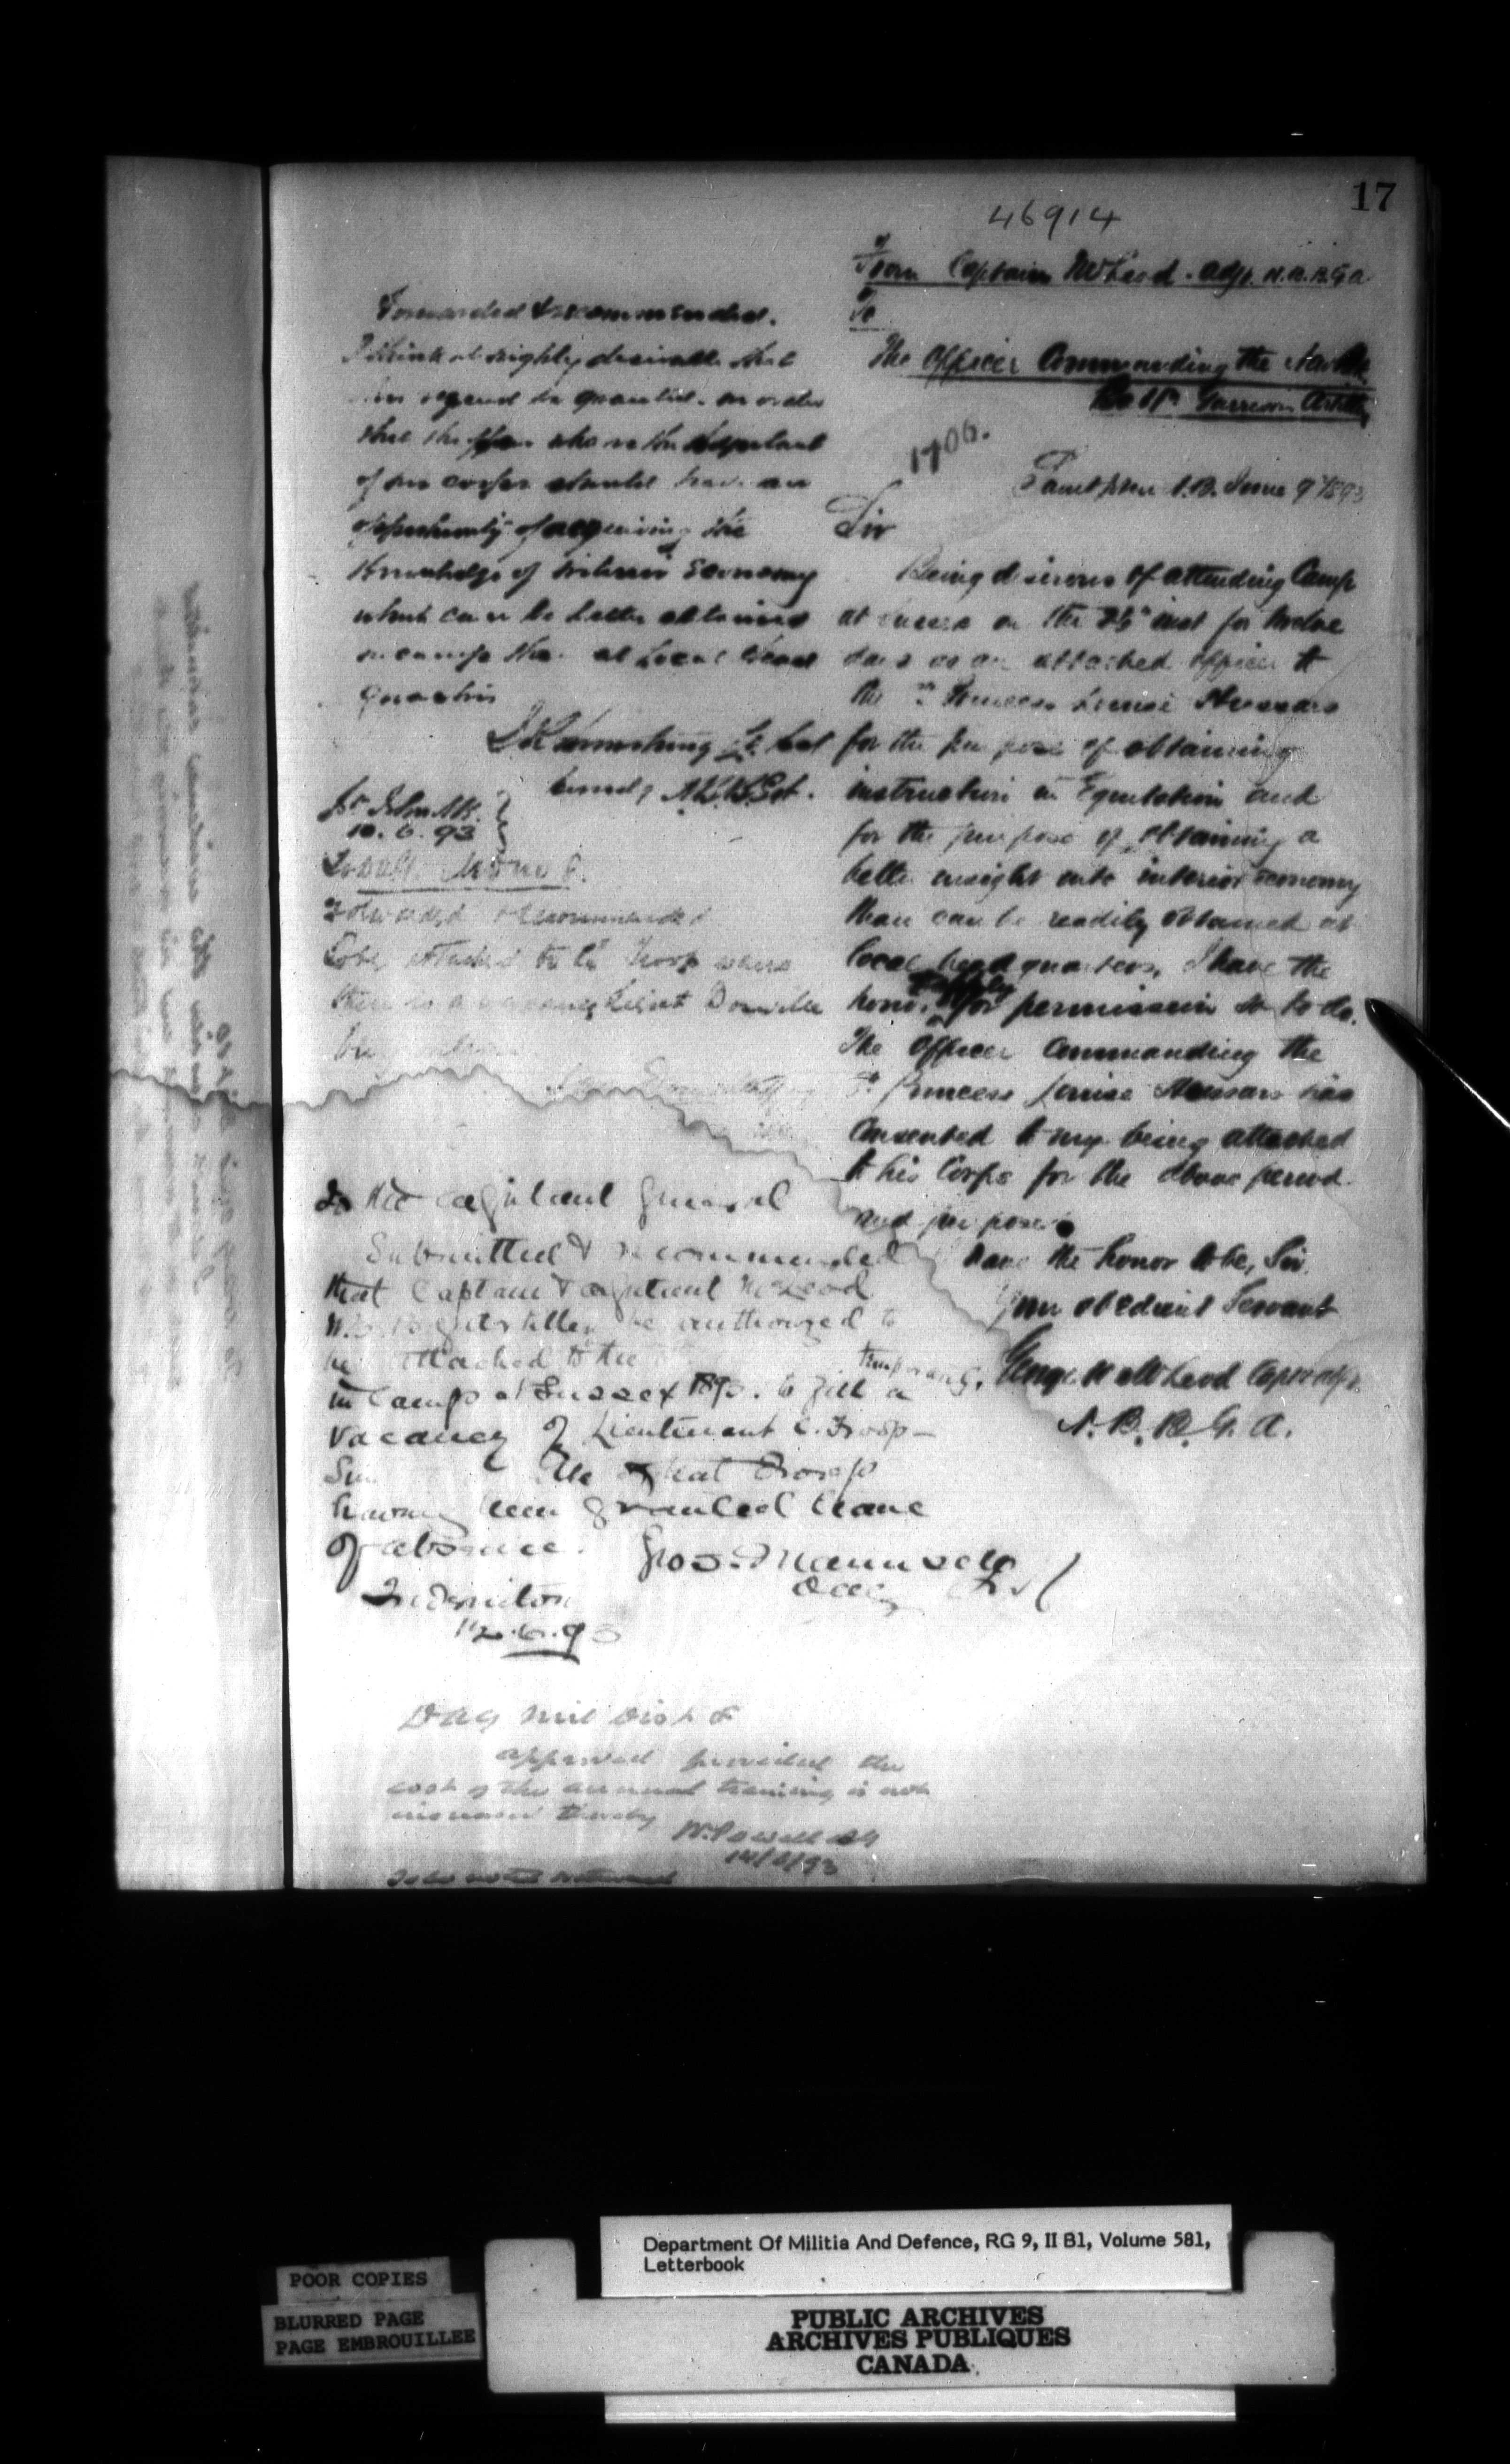 17
46914
From Captain McLeod. Adjt. N.B.B.G.A.
To
The Officer Commanding the
Garrison Artillery
1706.
Saint John N.B. June 9th 1893
Sir
Being desirous of attending Camp
at Sussex on the inst for twelve
days as an attached officer to
the Princess Louise Hussars
for the purpose of obtaining
instruction in Equitation and
for the purpose of obtaining a
better insight into interior economy
than can be readily obtained at
local head quarters, I have the
honor to apply for permission so to do.
The Officer Commanding the
Princess Louise Hussars has
consented to my being attached
to his Corps for the above period
and purpose
have the honor to be, Sir
Your obedient Servant
George McLeod Capt & Adjt.
N.B.B.G.A.
Forwarded & recommended.
I think it highly desirable that
this request be granted. in order
that the who is the Adjutant
of his corps should have an
opportunity of acquiring the
knowledge of interior Economy
which can be better obtained
in camp than at Local Head
Quarters
J R Armstrong Lt Col
Comdg N.B.B.G.A.
St John N.B.
10.6.93
Forwarded & recommended
to be attached to Troop where
there is a vacancy Lieut Domville
To the Adjutant General
Submitted & recommended
that Captain & Adjutant McLeod
N.B. be authorized to
be attached to the temporarily,
in Camp at Sussex 1893. to fill a
vacancy of Lieutenant Troop –
of that Troop
having been granted leave
of absence.
Geo. J. Maunsell
DAG
Fredericton
12.6.93
DAG Mil Dist 8
approved provided the
cost of the annual training is not
increased thereby
W. Powell AG
14/6/93
To be noted & returned
POOR COPIES
BLURRED PAGE
PAGE EMBROUILLEE
Department Of Militia And Defence, RG 9, II B1, Volume 581,
Letterbook
PUBLIC ARCHIVES
ARCHIVES PUBLIQUES
CANADA